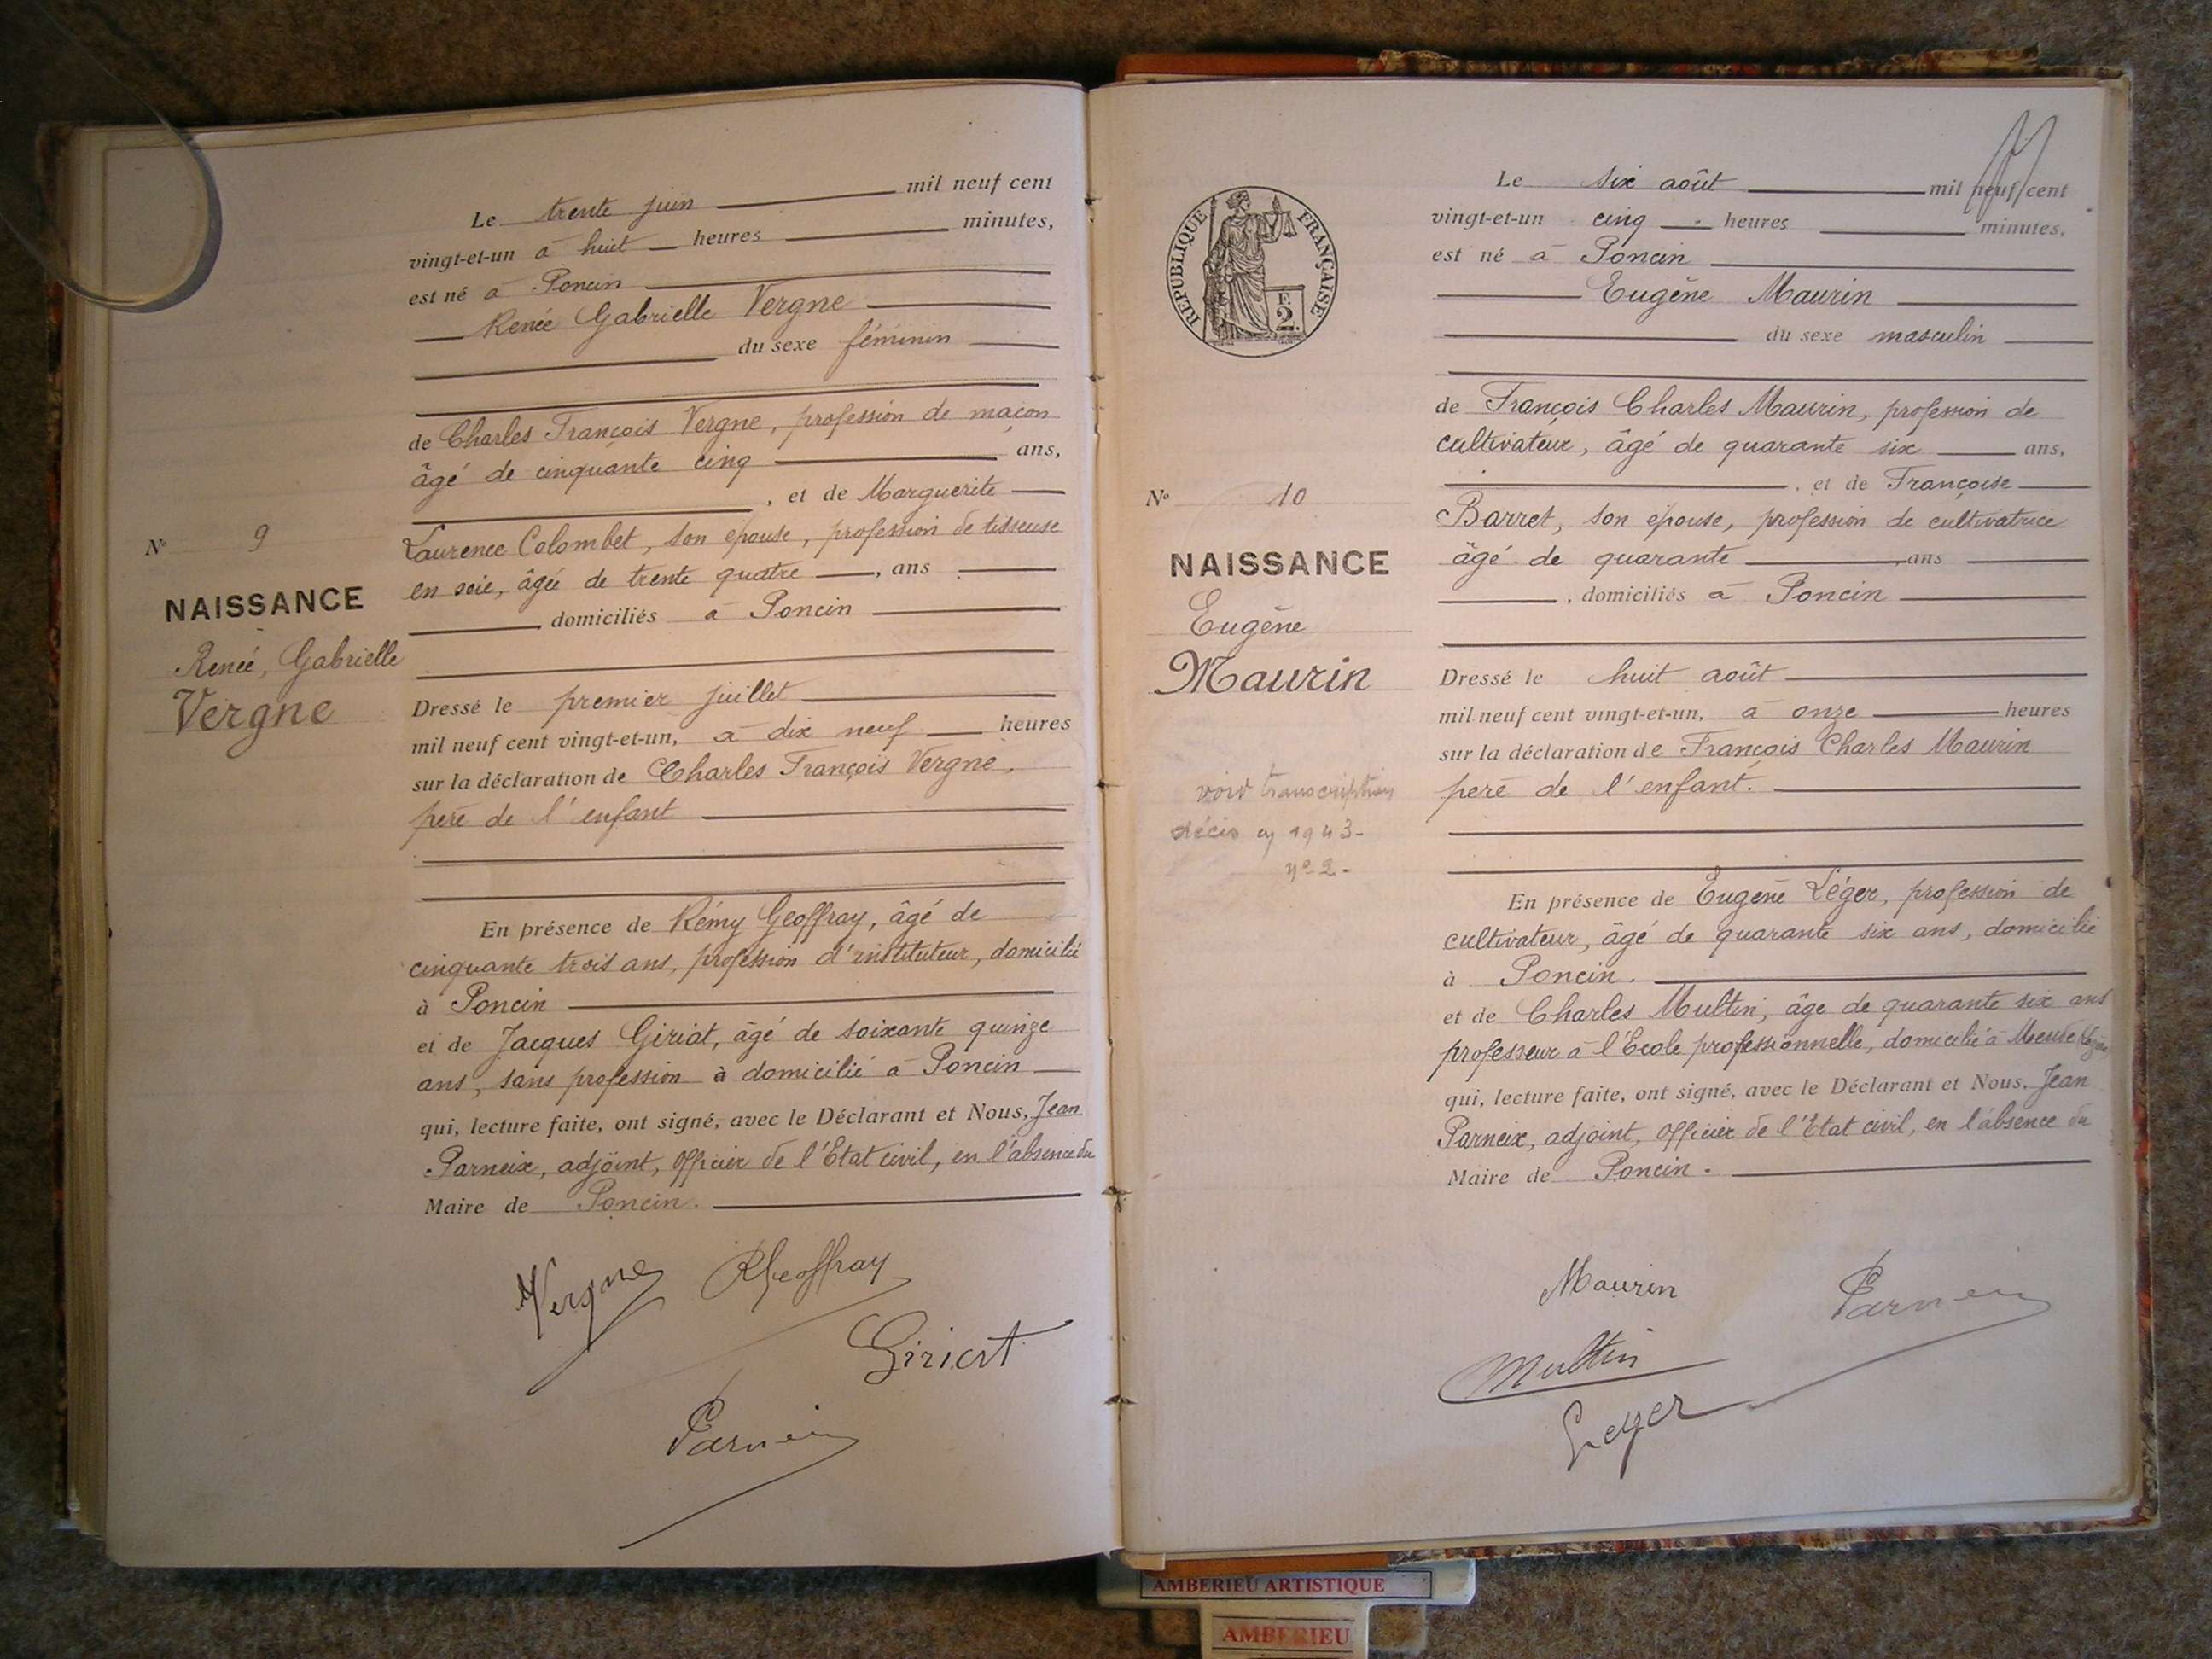 Le trente juin mil neuf cent
vingt-et-un à huit heures minutes,
est né à Poncin
Renée Gabrielle Vergne
du sexe féminin
de Charles François Vergne, profession de maçon
âgé de cinquante cinq ans,
, et de Marguerite
Laurence Colombet, son épouse, profession de tisseuse
en soie, âgée de trente quatre , ans
, domiciliés à Poncin
N° 9
NAISSANCE
Renée, Gabrielle
Vergne
Dressé le premier juillet
mil neuf cent vingt-et-un, à dix neuf heures
sur la déclaration de Charles François Vergne,
père de l'enfant
En présence de Rémy Geoffray, âgé de
cinquante trois ans, profession d'instituteur, domicilié
à Poncin
et de Jacques Giriat, âgé de soixante quinze
ans, sans profession à domicilié à Poncin
qui, lecture faite, ont signé, avec le Déclarant et Nous, Jean
Parneix, adjoint, officier de l'Etat civil, en l'absence du
Maire de Poncin.
Vergne RGeoffray
Giriat
Parneix
RÉPUBLIQUE FRANÇAISE
F.
2.
Le six août mil neuf cent
vingt-et-un cinq heures minutes,
est né à Poncin
Eugène Maurin
du sexe masculin
de François Charles Maurin, profession de
cultivateur, âgé de quarante six ans,
, et de Françoise
Barret, son épouse, profession de cultivatrice
âgé de quarante , ans
, domiciliés à Poncin
N° 10
NAISSANCE
Eugène
Maurin
voir transcription
décès en 1943-
n° 2-
Dressé le huit août
mil neuf cent vingt-et-un, à onze heures
sur la déclaration de François Charles Maurin
père de l'enfant.
En présence de Eugène Léger, profession de
cultivateur, âgé de quarante six ans, domicilié
à Poncin.
et de Charles Multin, âge de quarante six ans
professeur à l'École professionnelle, domicilié à
qui, lecture faite, ont signé, avec le Déclarant et Nous, Jean
Parneix, adjoint, officier de l'Etat civil, en l'absence du
Maire de Poncin.
Maurin Parneix
Multin
Leger
AMBERIEU ARTISTIQUE
AMBERIEU